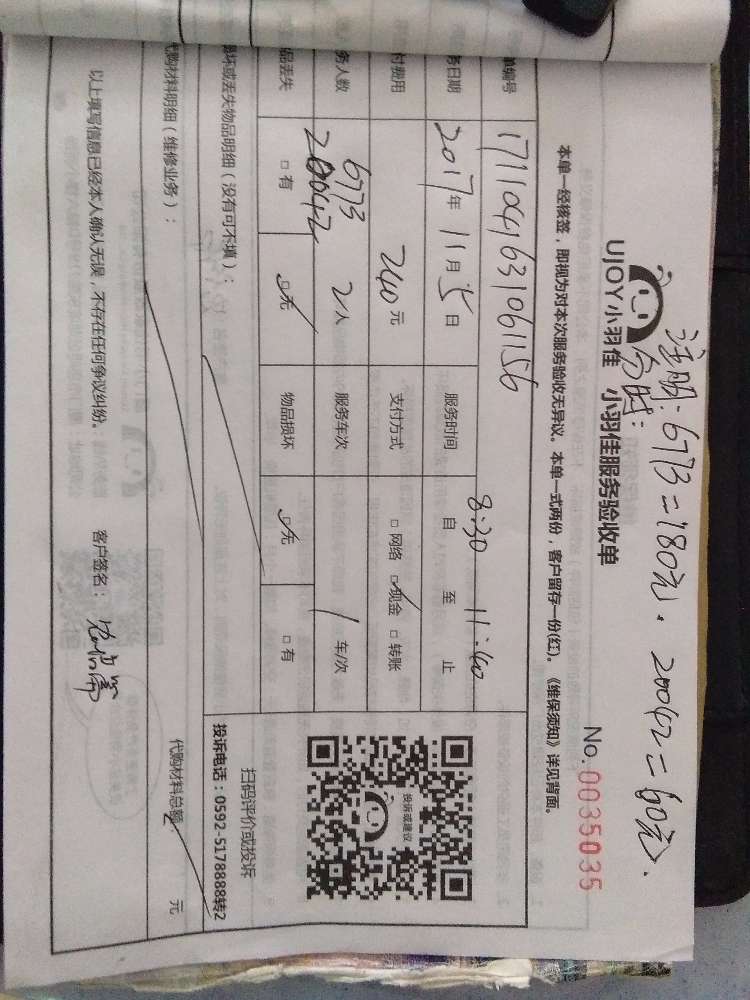 注明:6773=180元. 20042=60元.
分时:
UJOY小羽佳 小羽佳服务验收单
No.0035035
本单一经核签,即视为对本次服务验收无异议。本单一式两份,客户留存一份(红)。《维保须知》详见背面。
单编号 1711041631061156
务日期 2017年11月5日 服务时间 自 8:30 至 11:40 止
付费用 240元 支付方式 □网络 ☑现金 □转账
务人数 6773 20042 2人 服务车次 1车/次
品丢失 □有 ☑无 物品损坏 ☑无 □有
损坏或丢失物品明细(没有可不填):
投诉或建议
扫码评价或投诉
投诉电话:0592-5178888转2
代购材料明细(维修业务):
代购材料总额: 元
以上填写信息已经本人确认无误,不存在任何争议纠纷。
客户签名: